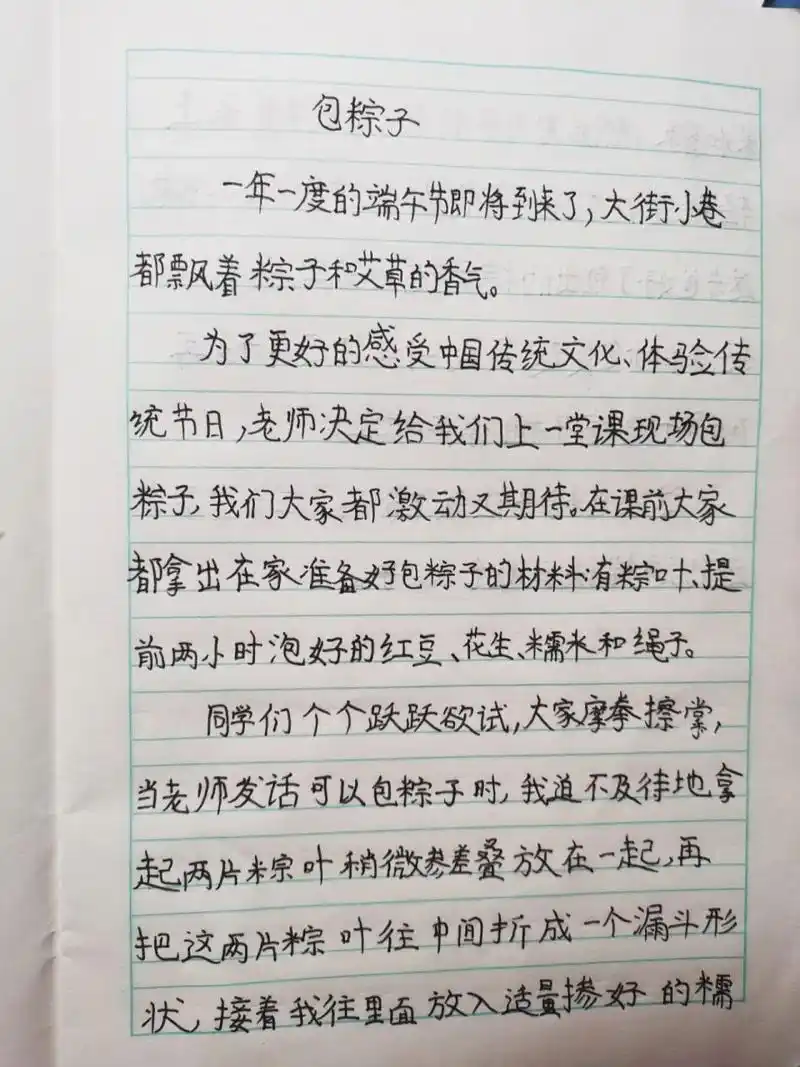 包粽子
一年一度的端午节即将到来了,大街小巷
都飘着粽子和艾草的香气。
为了更好的感受中国传统文化、体验传
统节日,老师决定给我们上一堂课现场包
粽子,我们大家都激动又期待。在课前大家
都拿出在家准备好包粽子的材料:有粽叶、提
前两小时泡好的红豆、花生、糯米和绳子。
同学们个个跃跃欲试,大家摩拳擦掌,
当老师发话可以包粽子时,我迫不及待地拿
起两片粽叶稍微参差叠放在一起,再
把这两片粽叶往中间折成一个漏斗形
状,接着我往里面放入适量掺好的糯